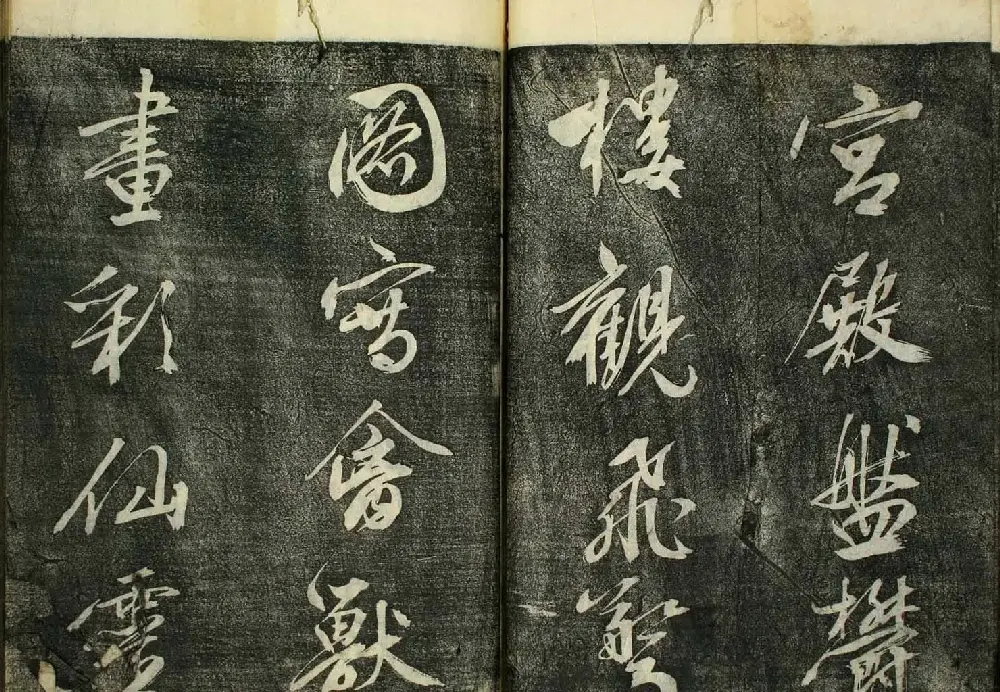 宮殿盤鬱
樓觀飛驚
圖寫禽獸
畫彩仙靈